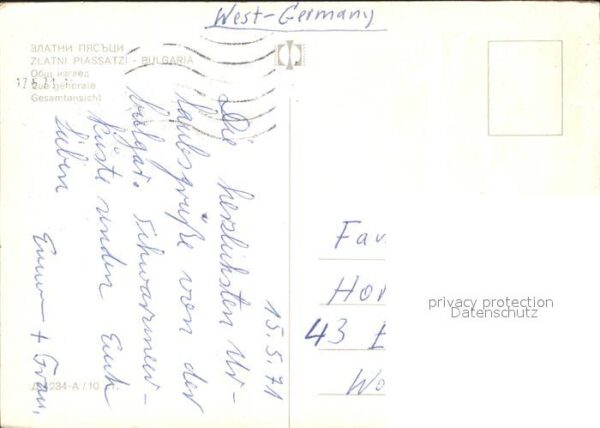 West-Germany
ЗЛАТНИ ПЯСЪЦИ
ZLATNI PIASSATZI - BULGARIA
Общ изглед
Vue generale
Gesamtansicht
15.5.71
Die herzlichsten Ur-
laubsgrüße von der
bulgar. Schwarzmeer-
küste senden Euch
Lieben
+ Frau.
Fa
Ho
43
Wo
privacy protection
Datenschutz